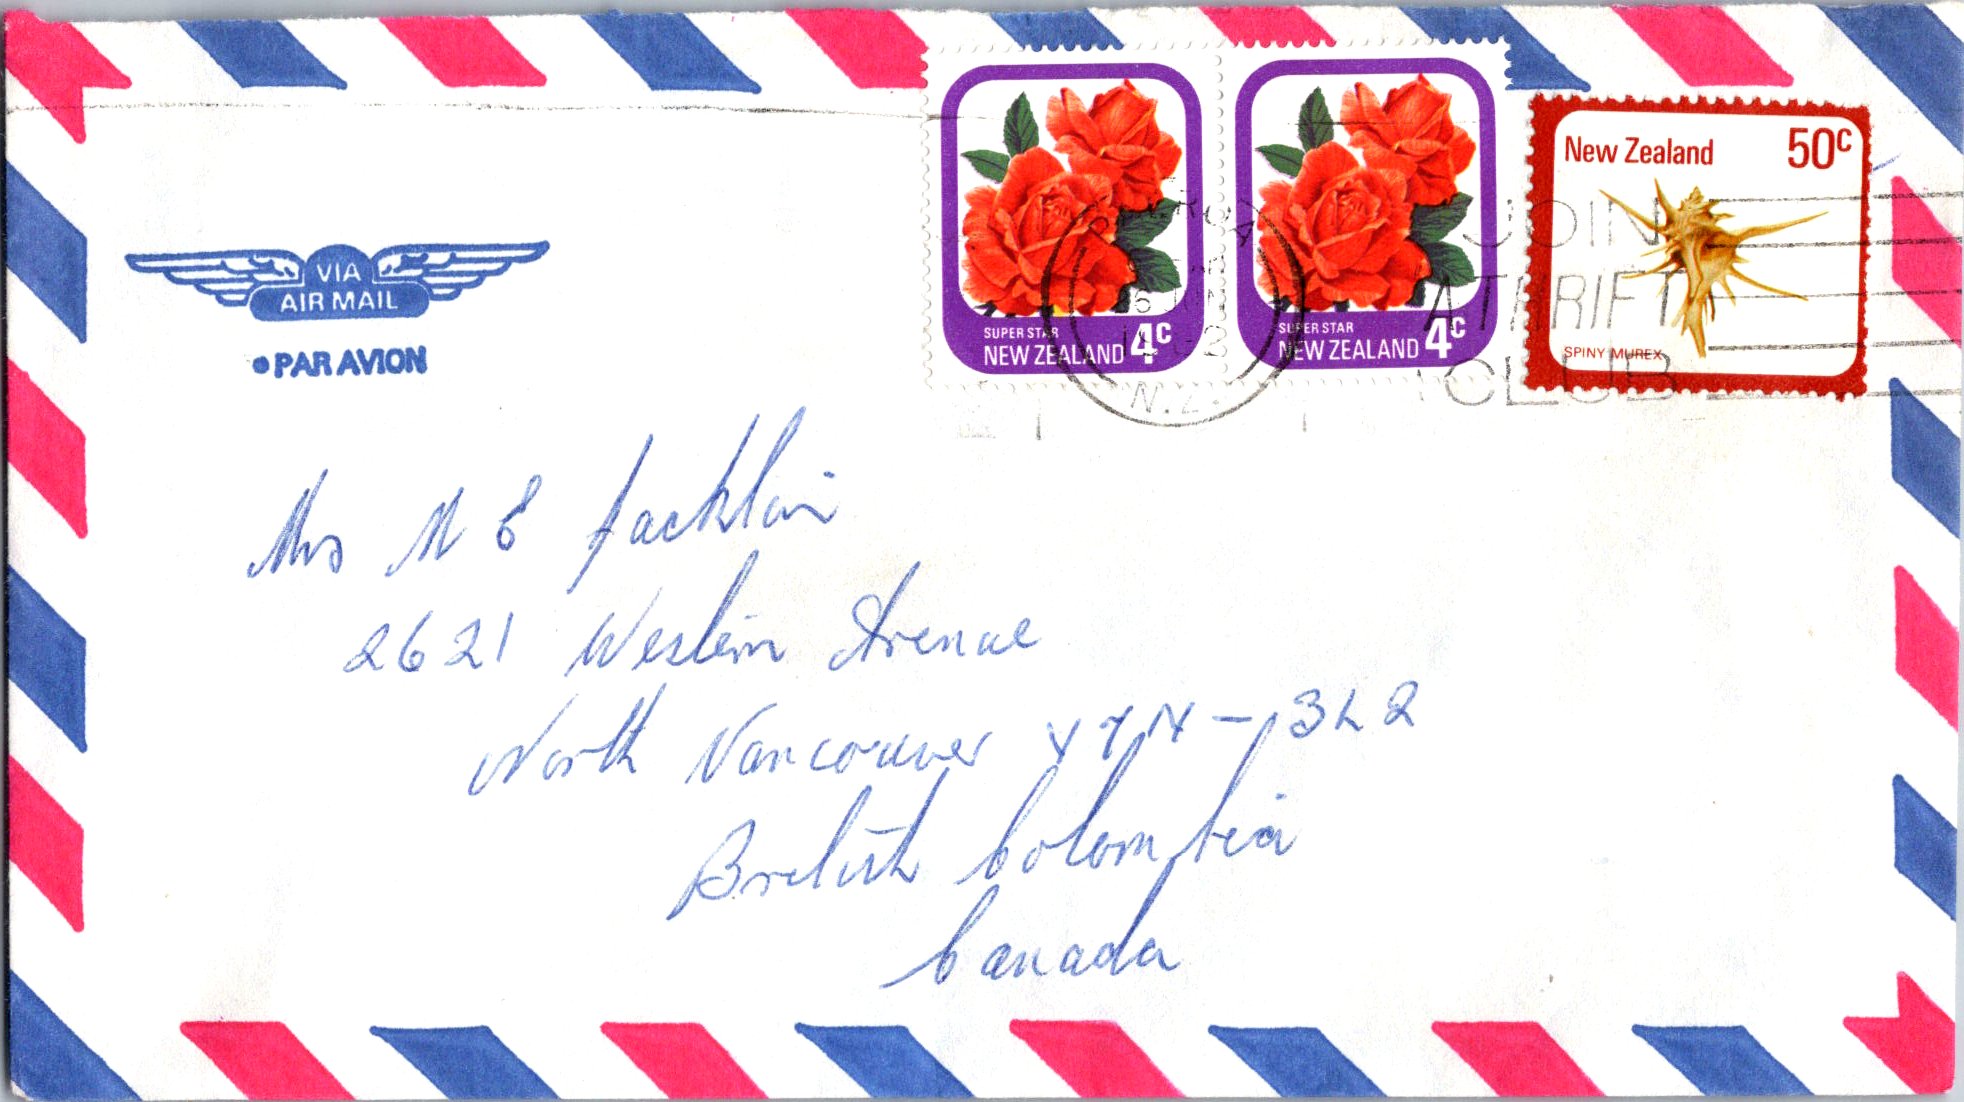 VIA
AIR MAIL
PAR AVION
SUPER STAR
NEW ZEALAND 4c
SUPER STAR
NEW ZEALAND 4c
New Zealand 50c
SPINY MUREX
JOIN
A THRIFT
CLUB
N.Z.
Mrs M E Jacklin
2621 Western Avenue
North Vancouver V7N-3L2
British Colombia
Canada